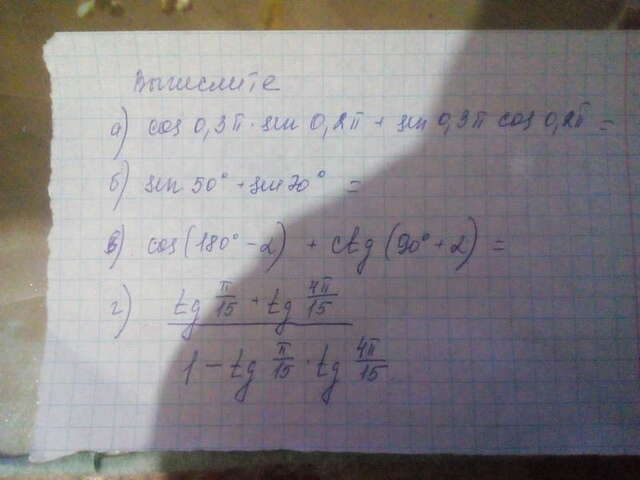 Вычислите
а) cos 0,3π · sin 0,2π + sin 0,3π cos 0,2π =
б) sin 50° + sin 70° =
в) cos (180° - 2) + ctg (90° + 2) =
г) tg π/15 + tg 4π/15
1 - tg π/15 · tg 4π/15